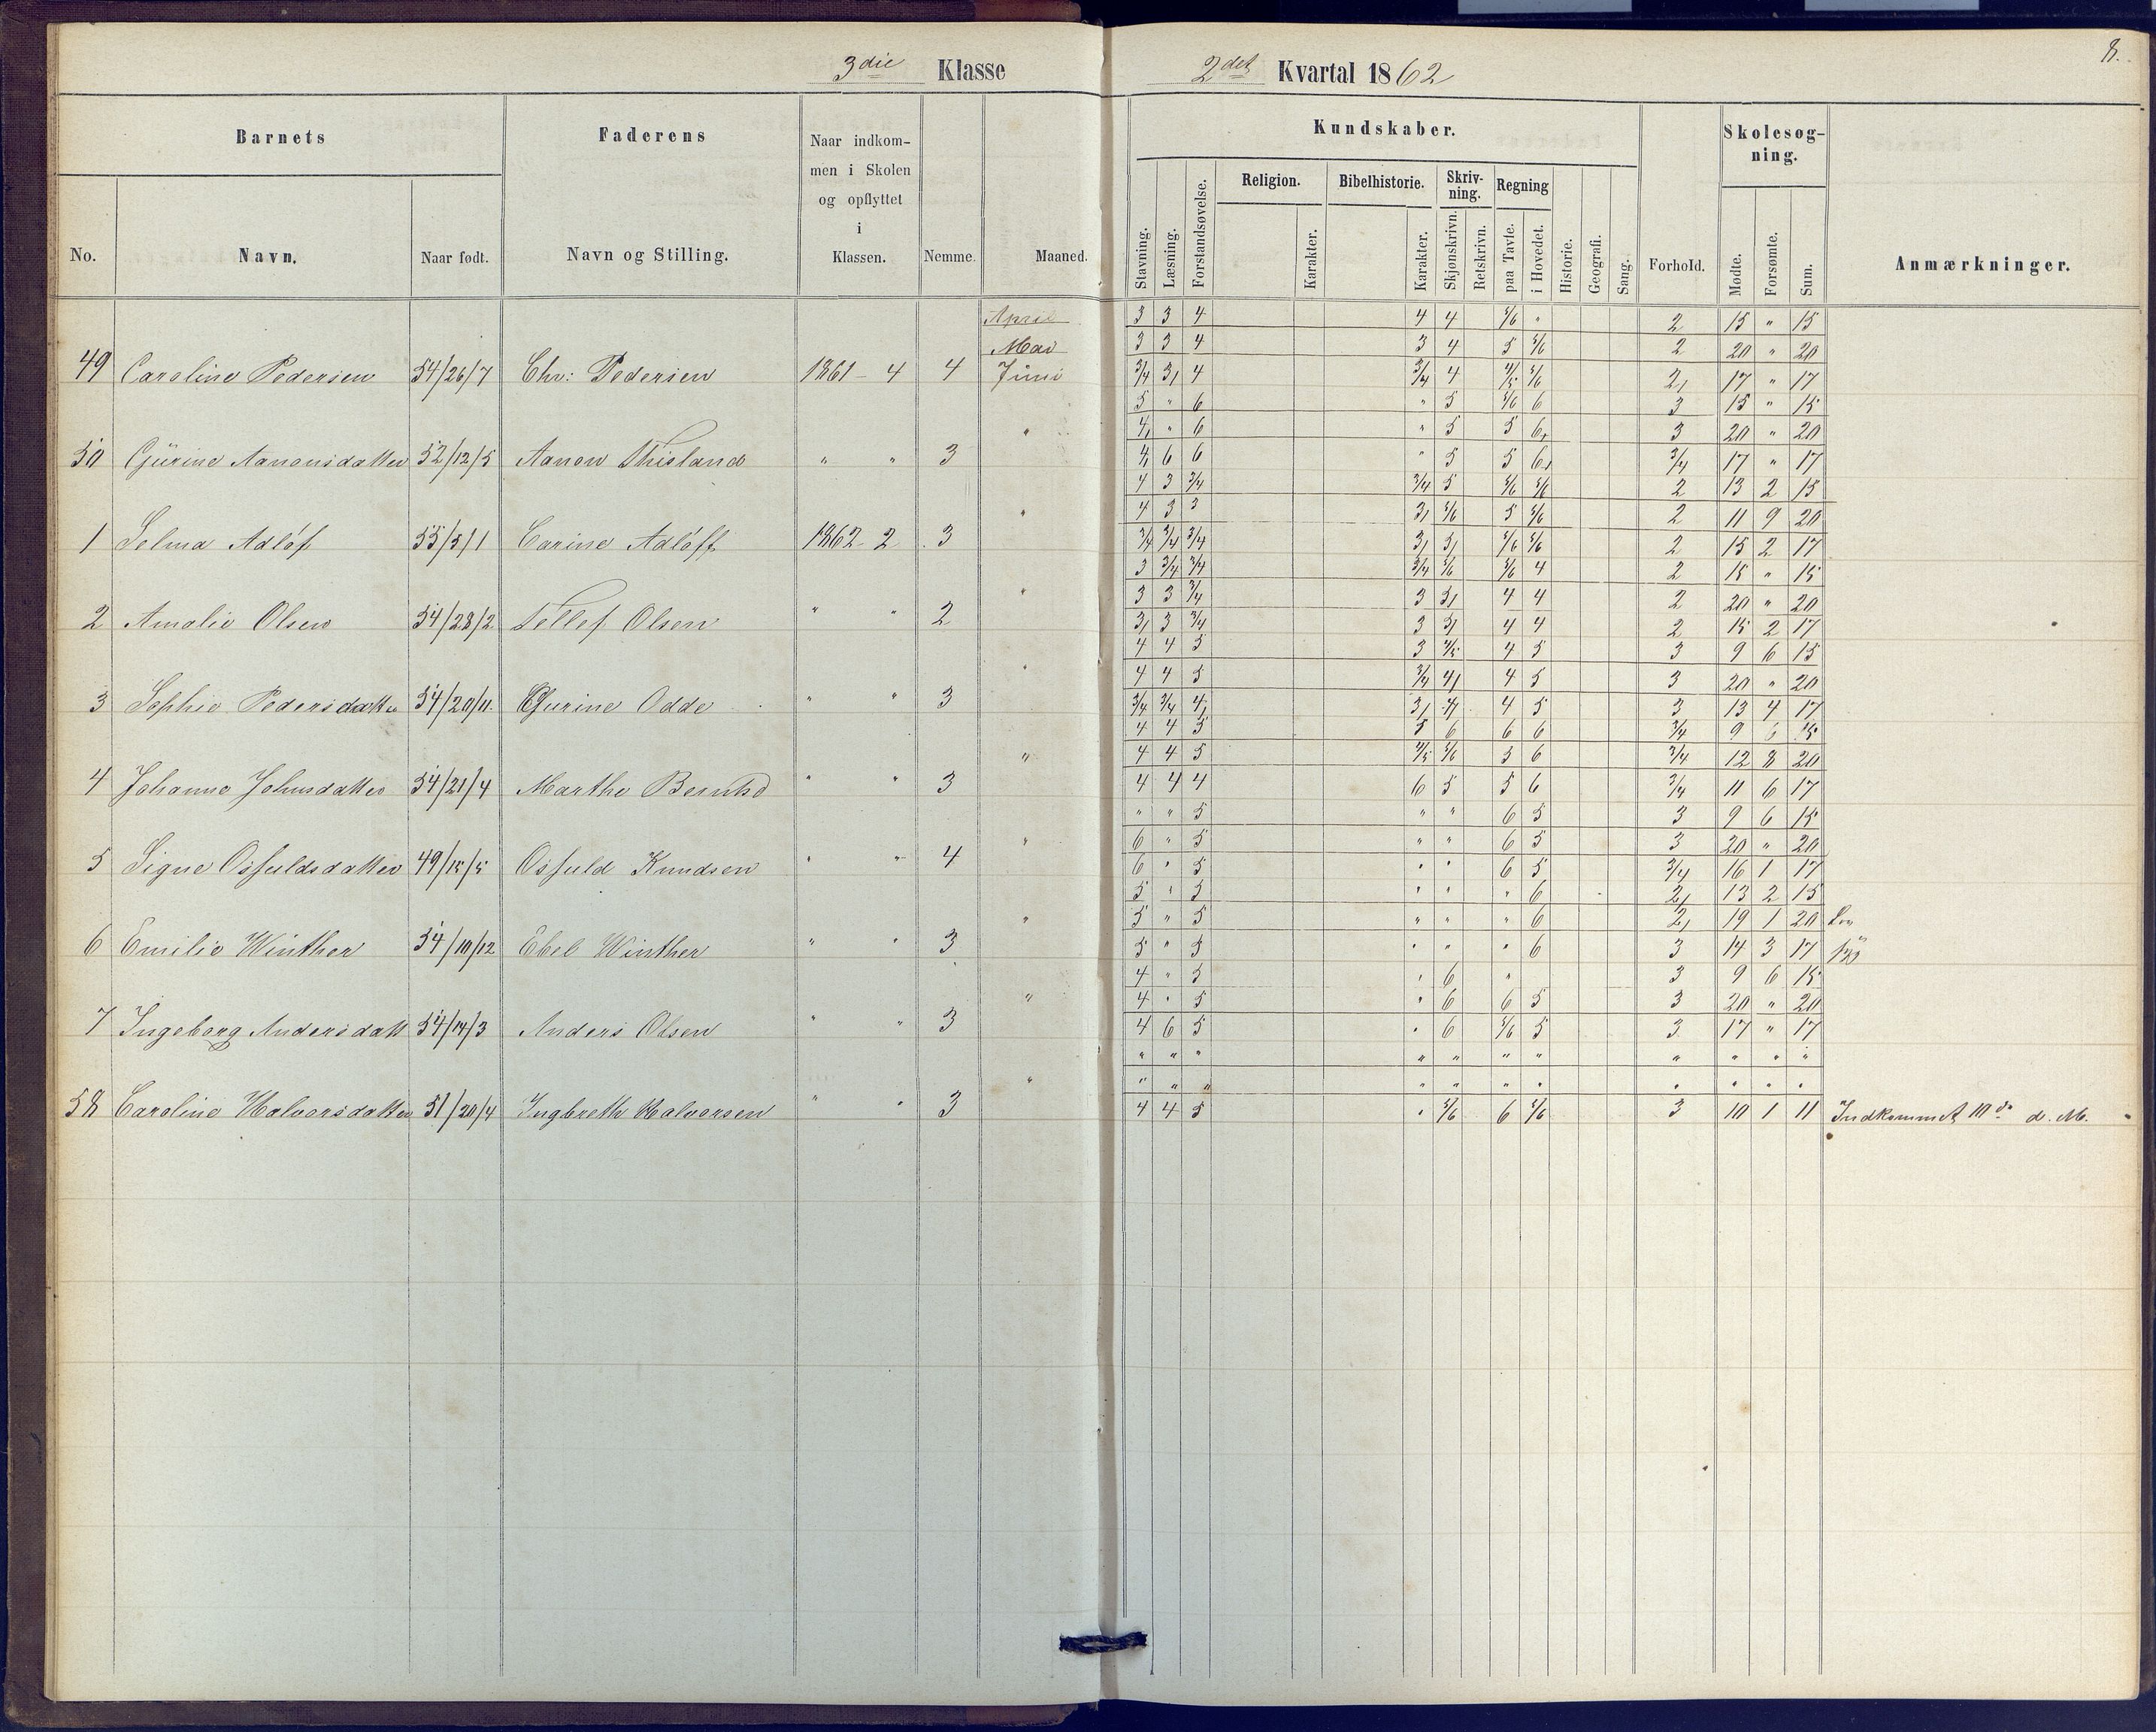 3die Klasse
2det Kvartal 1862
8.
Barnets
Faderens
Naar indkom-
men i Skolen
og opflyttet
i
Klassen.
No.
Navn.
Naar født.
Navn og Stilling.
Nemme.
Maaned.
Kundskaber.
Skolesøg-
ning.
Religion.
Bibelhistorie.
Skriv-
ning.
Regning
Stavning.
Læsning.
Forstandsøvelse.
Karakter.
Karakter.
Skjønskrivn.
Retskrivn.
paa Tavle.
i Hovedet.
Historie.
Geografi.
Sang.
Forhold.
Mødte.
Forsømte.
Sum.
Anmærkninger.
April 3 3 4 4 4 5/6 " 2 15 " 15
Mai 3 3 4 3 4 5 5/6 2 20 " 20
49 Caroline Pedersen 54/26/7 Chr: Pedersen 1861 - 4 4 Juni 3/4 3, 4 3/4 4 4/5 5/6 2, 17 " 17
5 " 6 " 5 5/6 6 3 15 " 15
" 4, " 6 " 5 5 6, 3 20 " 20
50 Gurine Aanonsdatter 52/12/5 Aanon Thisland " " 3 4, 6 6 " 5 5 6, 3/4 17 " 17
4 3 3/4 3/4 5 5/6 5/6 2 13 2 15
" 4 3 3 3, 5/6 5 5/6 2 11 9 20
1 Selma Adløf 55/5/1 Carine Adløff 1862 - 2 3 3/4 3/4 3/4 3, 5, 5/6 5/6 2 15 2 17
3 3/4 3/4 3/4 5/6 5/6 4 2 15 " 15
" 3 3 3/4 3 3, 4 4 2 20 " 20
2 Amalie Olsen 54/28/2 Tellef Olsen " " 2 3, 3 3/4 3 3, 4 4 2 15 2 17
4 4 5 3 4/5 4 5 3 9 6 15
" 4 4 5 3/4 4, 4 5 3 20 " 20
3 Sophie Pedersdatter 54/20/11 Gurine Odde " " 3 3/4 3/4 4, 3, 4, 4 5 3 13 4 17
4 4 5 5 6 6 6 3/4 9 6 15
" 4 4 5 4/5 5/6 5 6 3/4 12 8 20
4 Johanne Johnsdatter 54/21/4 Marthe Berntsd " " 3 4 4 4 6 5 5 6 3/4 11 6 17
" " 5 " " 6 5 3 9 6 15
" 6 " 5 " " 6 5 3 20 " 20
5 Signe Osfuldsdatter 49/15/5 Osfuld Knudsen " " 4 6 " 5 " " 6 5 3/4 16 1 17
5 " 5 " " " 6 2, 13 2 15
" 5 " 5 " " " 6 2, 19 1 20
6 Emilie Winther 54/10/12 Ebel Winther " " 3 5 " 5 " " " 6 3 14 3 17
4 " 5 " 6 " 3 9 6 15
" 4 " 5 " 6 6 5 3 20 " 20
7 Ingeborg Andersdatt 54/14/3 Anders Olsen " " 3 4 6 5 " 6 5/6 5 3 17 " 17
" " " " " " " " " " "
" " " " " " " " " " " "
58 Caroline Halvorsdatter 51/20/4 Ingbreth Halvorsen " " 3 4 4 5 " 5/6 6 5/6 3 10 1 11 Indkommet 10de d. M.